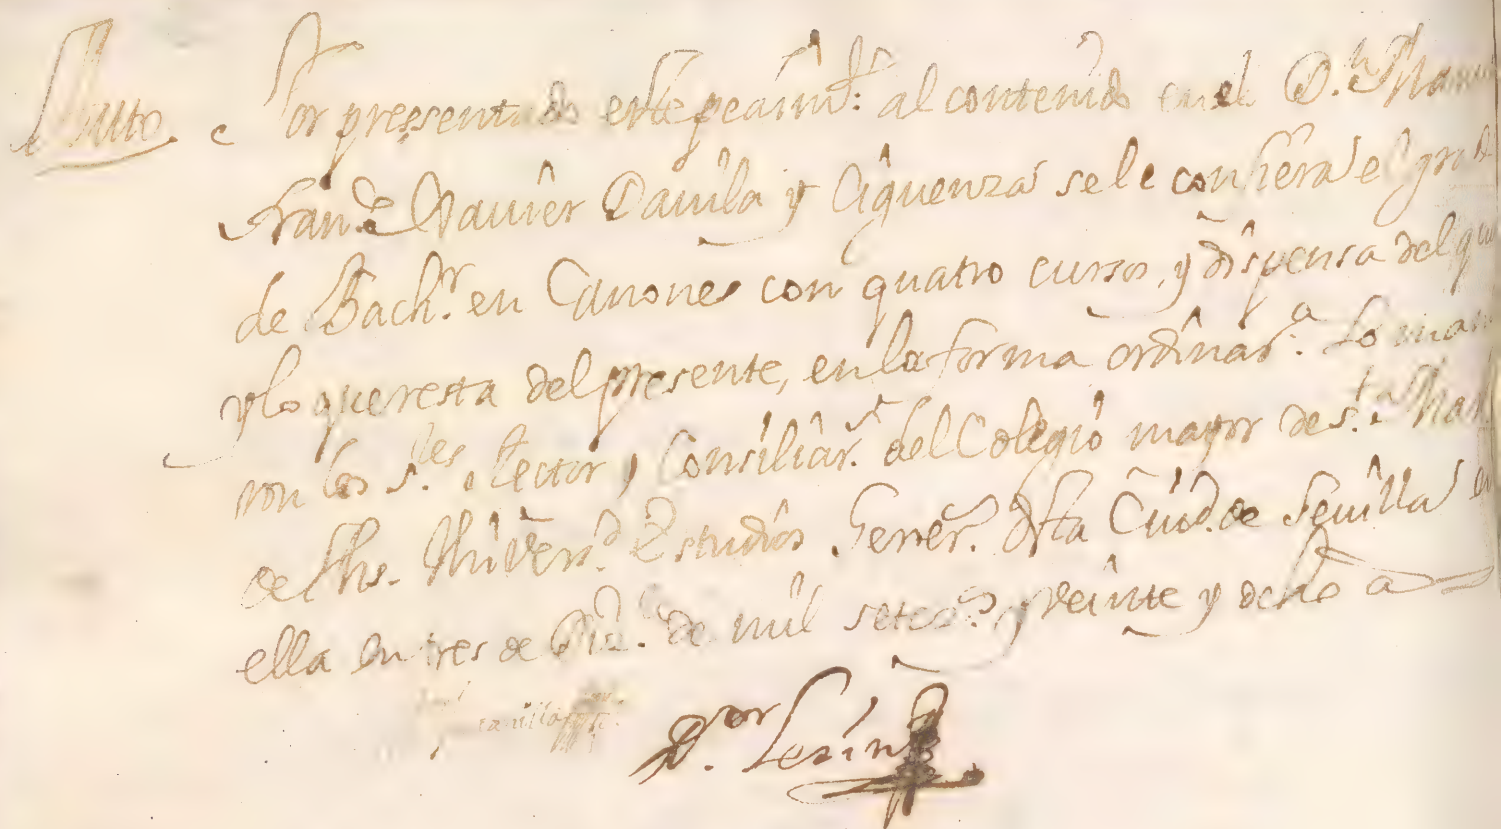 Auto. Por pressentado este pedim.to: al contenido en el D.n Man
Fran.co Xavier Davila y Ciguenza se le confiera el grad
de Bach.r en Canones con quatro cursos, y dispensa del qu
y lo que resta del presente, en la forma ordinar.a Lo man
ron los s.res Rector y Consiliar.s del Colegio mayor de s.ta Mar.
de Jhs. Univers.d Estudios Gener.s desta Ciud. de Sevilla en
ella en tres de Diz.e de mil setec.s y veinte y ocho a
D.or Lesin